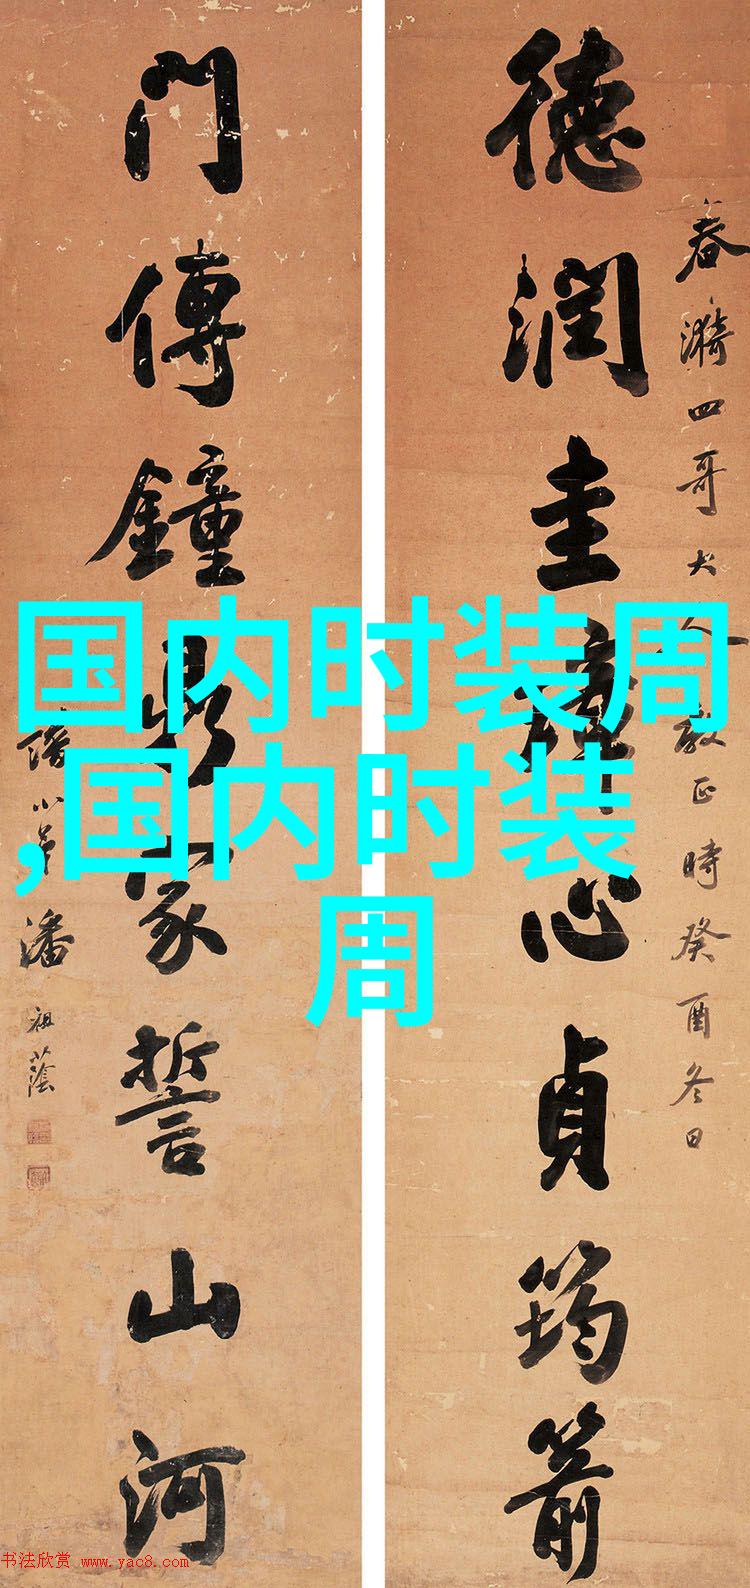 春漪四哥大人教正時癸酉冬日
德潤圭璋心貞筠箭
門傳鐘鼎家誓山河
譜小弟潘祖蔭
国内时装周
,国内时装
周
书法欣赏 www.yac8.com